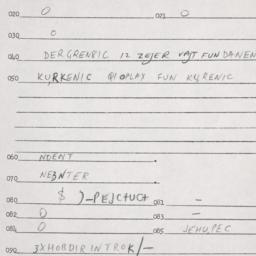 020 0 021 0
030 0
040 DERGRENBIC 12 ZEJER VAJT FUNDANEN
050 KURKENIC QIOPLAX FUN KURENIC
060 NDENT
070 NEBNTER
080 $ )-PEJCTUCT 081 -
082 0 083 -
084 0 085 JEHUPEC
090 3XHOBDIRINTROK/-